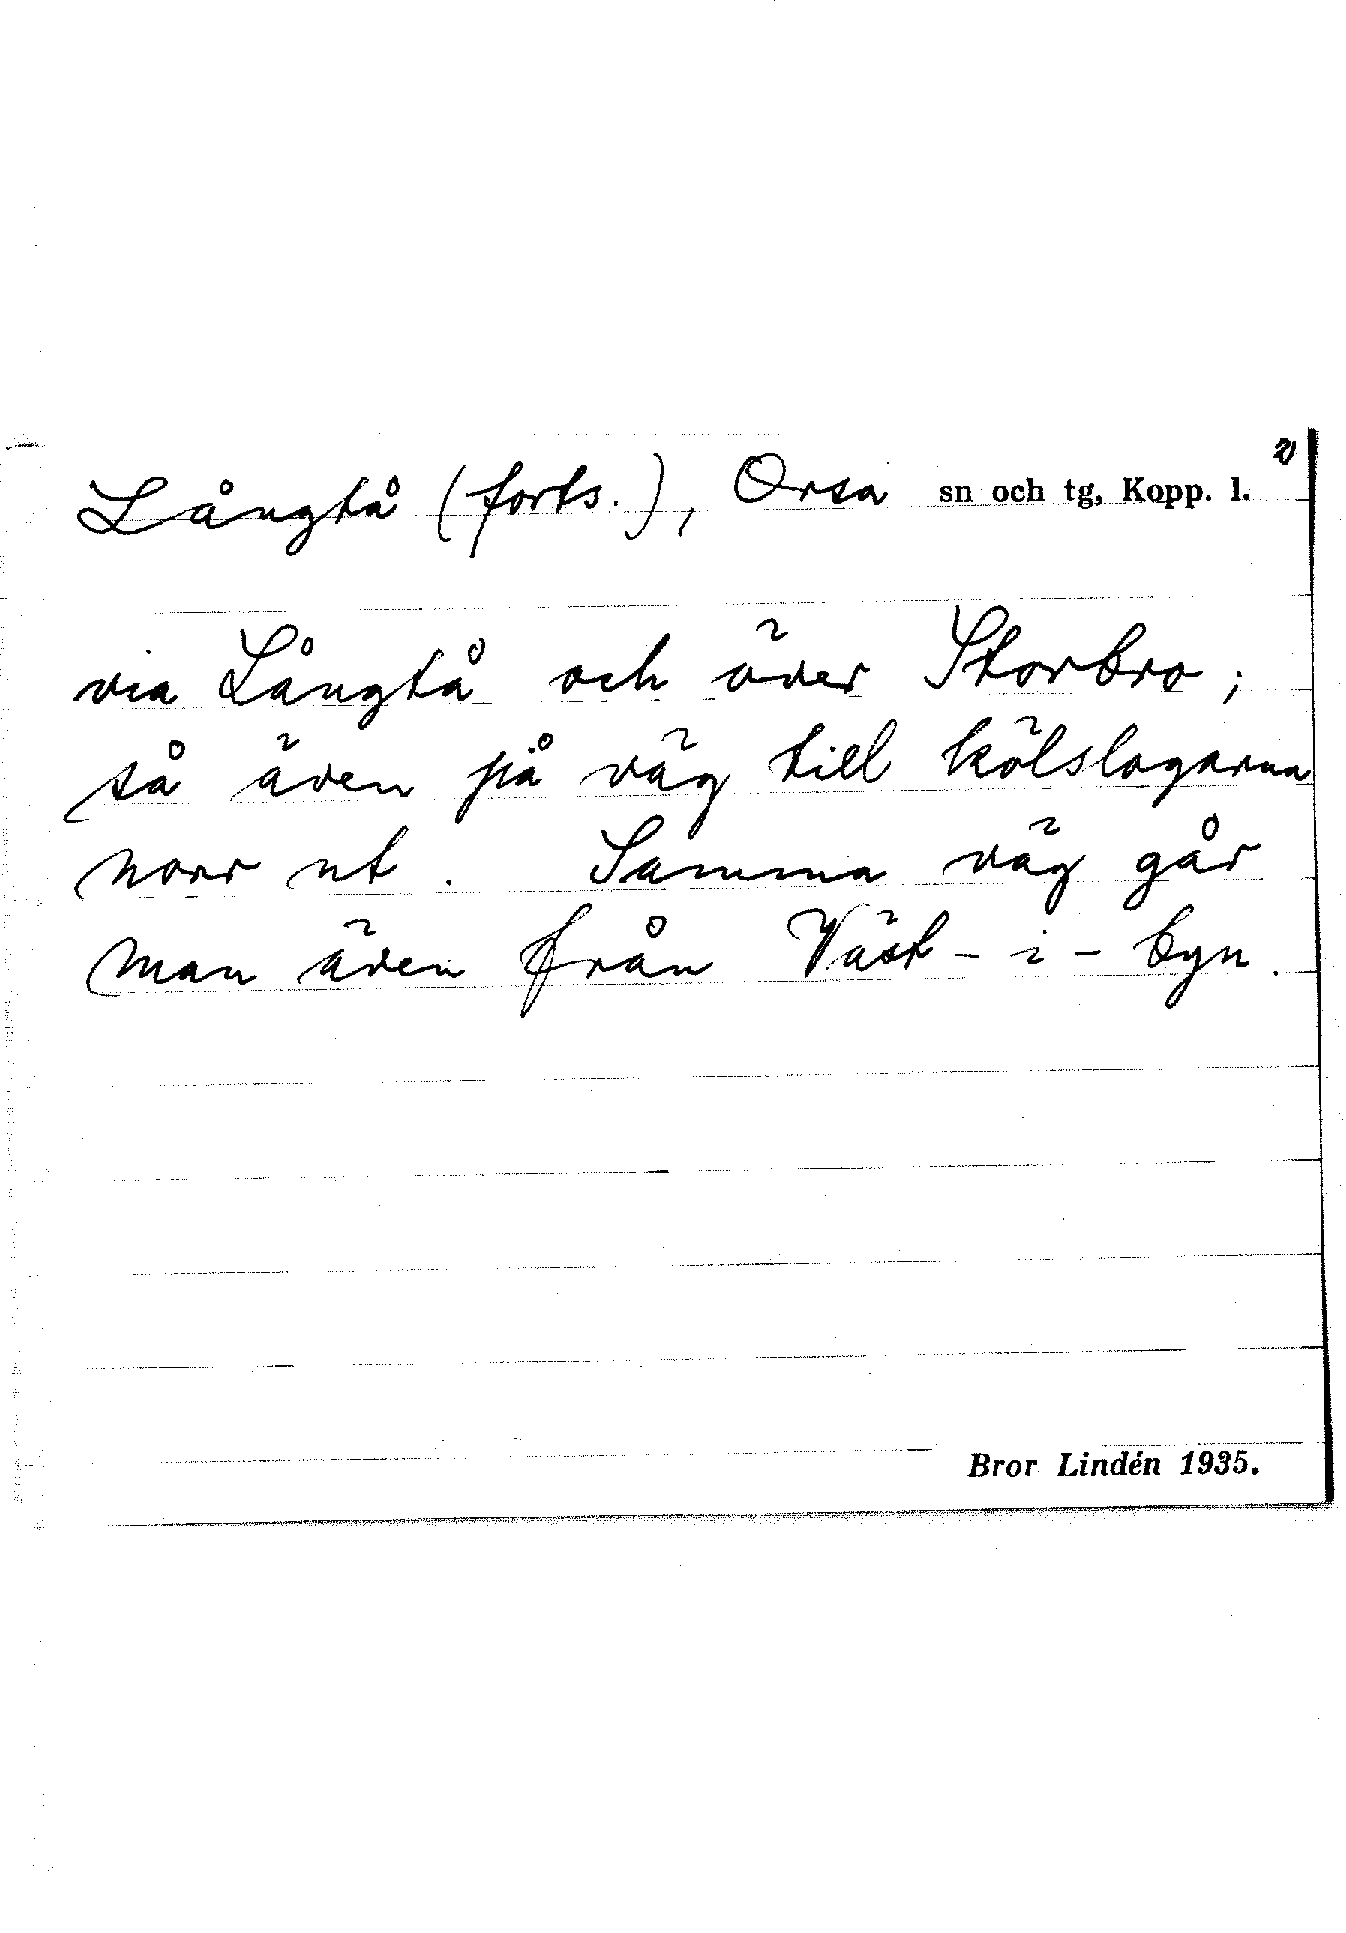 2
Långtå (forts.), Orsa sn och tg, Kopp. l.
via Långtå och över Storbro;
så även på väg till kölslogarna
norr ut. Samma väg går
man även från Väst-i-byn.
Bror Lindén 1935.